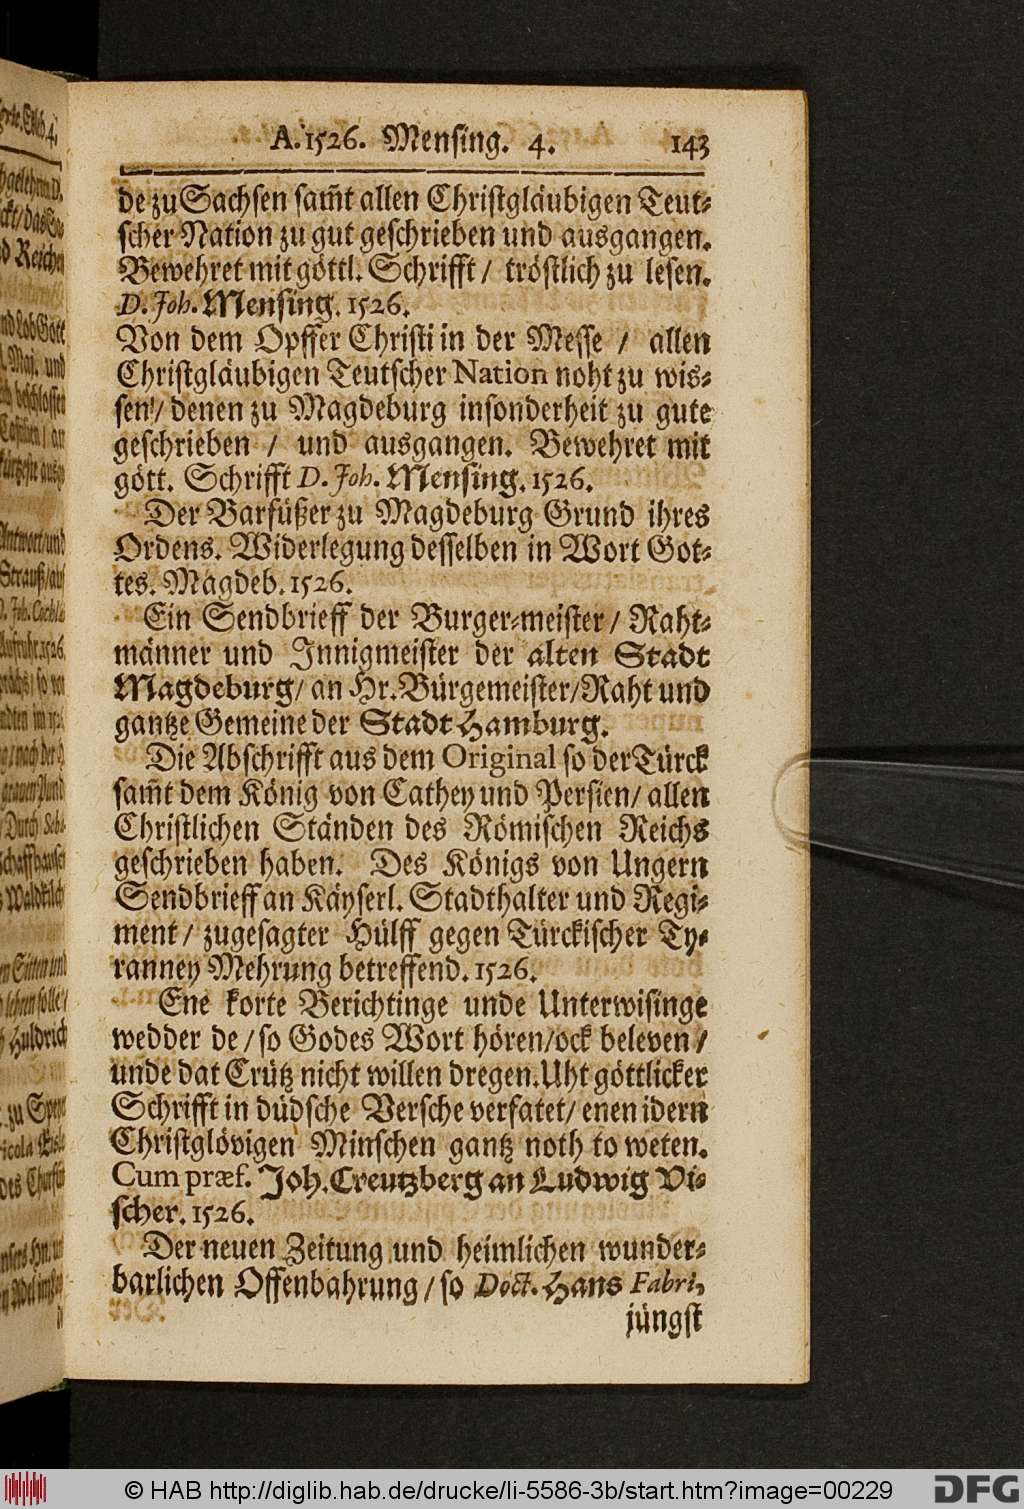 A. 1526. Mensing. 4. 143
de zu Sachsen sam̃t allen Christgläubigen Teut-
scher Nation zu gut geschrieben und ausgangen.
Bewehret mit göttl. Schrifft / tröstlich zu lesen.
D. Joh. Mensing. 1526.
Von dem Opffer Christi in der Messe / allen
Christgläubigen Teutscher Nation noht zu wis-
sen / denen zu Magdeburg insonderheit zu gute
geschrieben / und ausgangen. Bewehret mit
gött. Schrifft D. Joh. Mensing. 1526.
Der Barfüßer zu Magdeburg Grund ihres
Ordens. Widerlegung desselben in Wort Got-
tes. Magdeb. 1526.
Ein Sendbrieff der Burger-meister / Raht-
männer und Innigmeister der alten Stadt
Magdeburg / an Hr. Bürgemeister / Raht und
gantze Gemeine der Stadt Hamburg.
Die Abschrifft aus dem Original so der Türck
sam̃t dem König von Cathey und Persien / allen
Christlichen Ständen des Römischen Reichs
geschrieben haben. Des Königs von Ungern
Sendbrieff an Käyserl. Stadthalter und Regi-
ment / zugesagter Hülff gegen Türckischer Ty-
ranney Mehrung betreffend. 1526.
Ene korte Berichtinge unde Unterwisinge
wedder de / so Godes Wort hören / ock beleven /
unde dat Crütz nicht willen dregen. Uht göttlicker
Schrifft in düdsche Versche verfatet / enen idern
Christglövigen Minschen gantz noth to weten.
Cum præf. Joh. Creutzberg an Ludwig Vi-
scher. 1526.
Der neuen Zeitung und heimlichen wunder-
barlichen Offenbahrung / so Doct. Hans Fabri,
jüngst
© HAB http://diglib.hab.de/drucke/li-5586-3b/start.htm?image=00229
DFG